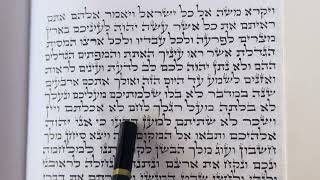 ויקרא משה אל כל ישראל ויאמר אלהם אתם
ראיתם את כל אשר עשה יהוה לעיניכם בארץ
מצרים לפרעה ולכל עבדיו ולכל ארצו המסות
הגדלת אשר ראו עיניך האתת והמפתים הגדלים
ההם ולא נתן יהוה לכם לב לדעת ועינים לראות
ואזנים לשמע עד היום הזה ואולך אתכם ארבעים
שנה במדבר לא בלו שלמתיכם מעליכם ונעלך
לא בלתה מעל רגלך לחם לא אכלתם ויין
ושכר לא שתיתם למען כי אני יהוה
אלהיכם ותבאו אל המקום ויצא סיחן מלך
חשבון ועוג מלך הבשן למלחמה
ונכם ונקח את ארצם לנחלה לראובני